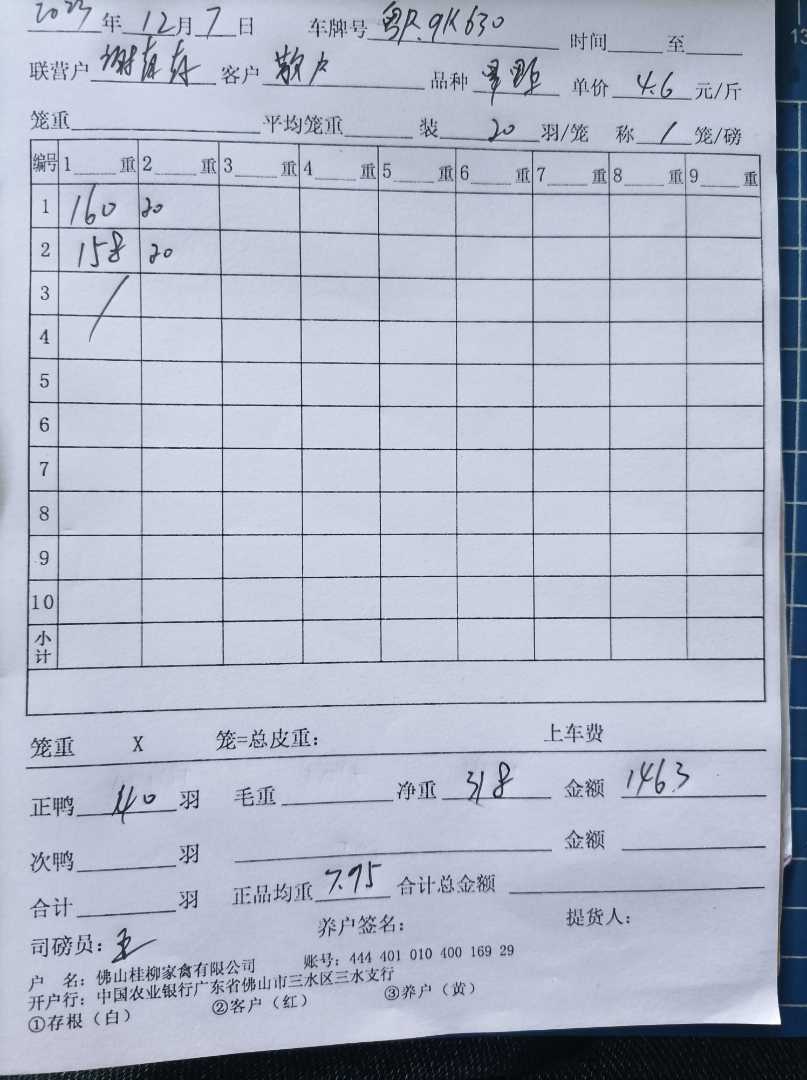 2023年 12月 7日 车牌号 粤R.9K630 时间 至
联营户 谢 客户 散户 品种 单价 4.6 元/斤
笼重 平均笼重 装 20 羽/笼 称 1 笼/磅
编号 1 重 2 重 3 重 4 重 5 重 6 重 7 重 8 重 9 重
1 160 20
2 158 20
3
4
5
6
7
8
9
10
小计
笼重 X 笼=总皮重: 上车费
正鸭 40 羽 毛重 净重 318 金额 1463
次鸭 羽 金额
合计 羽 正品均重 7.95 合计总金额
养户签名: 提货人:
司磅员: 王
户 名: 佛山桂柳家禽有限公司 账号: 444 401 010 400 169 29
开户行: 中国农业银行广东省佛山市三水区三水支行
①存根(白) ②客户(红) ③养户(黄)
13